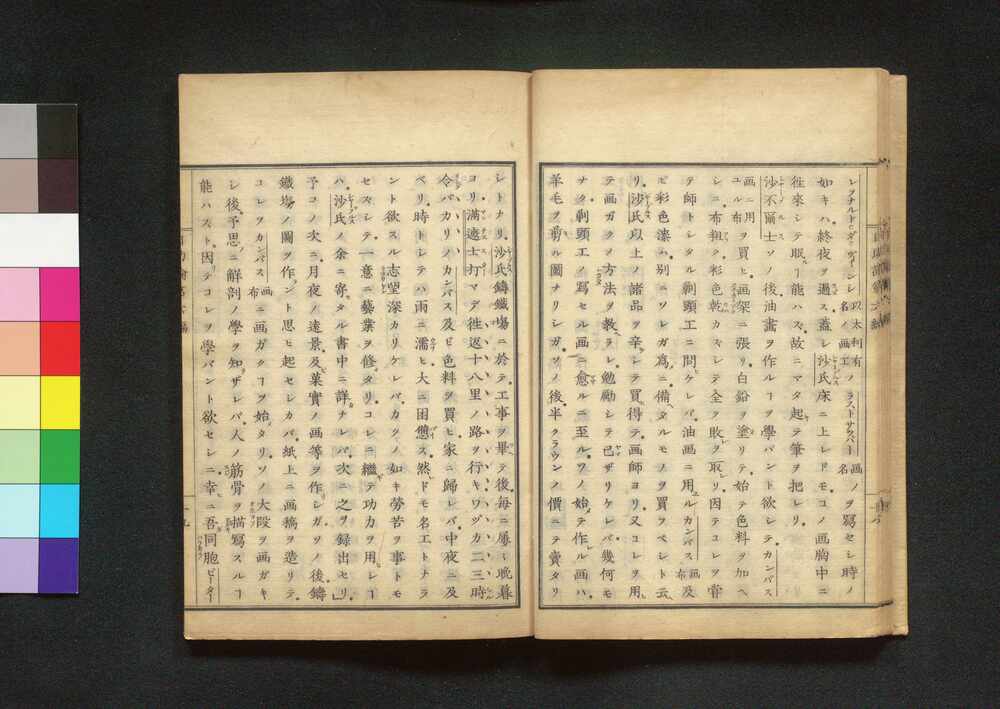 レヲナルド、ヴィンシ以太利有名ノ画工ノラストサッパー画名ノヲ寫セシ時ノ
如キハ、終夜ヲ過ス、蓋シ沙氏床ニ上レドモコノ画胸中ニ
徃來シテ眠ー能ハス、故ニマタ起テ筆ヲ把レリ、
沙不爾士ソノ後油畫ヲ作ルーヲ學バント欲シテカンバス
画ニ用ユル布ヲ買ヒ、画架ニ張リ、白鉛ヲ塗リテ、始テ色料ヲ加ヘ
シニ、布粗ク彩色乾カスシテ、全ク敗ヲ取リ、因テコレヲ甞
テ師トシタル剃頭工ニ問ケレバ、油画ニ用ユルカンバス画布及
ビ彩色漆ハ、別ニソレガ為ニ備タルモノヲ買フベシト云
リ、沙氏以上ノ諸品ヲ辛シテ買得テ、画師ヨリ又コレヲ用
テ画ガクノ方法ヲ教ヘラレ、勉勵シテ已ザリケレバ、幾何モ
ナク、剃頭工ノ寫セル画ニ愈ルニ至ル、ソノ始メテ作ル画ハ、
羊毛ヲ剪ル圖ナリシガ、ソノ後半クラウンノ價ニテ賣タリ
シトナリ、沙氏鑄鐵塲ニ於テ、工事ヲ畢テ後、毎ニ屡〻晩暮
ヨリ、満遮士打マデ徃返十八里ノ路ヲ行キ、ワヅカ二三時
令バカリノカンバス及ビ色料ヲ買ヒ、家ニ歸レバ、中夜ニ及
ベリ、時トシテハ雨ニ濡ヒ、大ニ困憊ス、然ドモ名工トナラ
ント欲スル志望深カリケレバ、カクノ如キ勞苦ヲ事トモ
セスシテ、一意ニ藝業ヲ修タリ、コレニ繼テ功力ヲ用シー
ハ、沙氏ノ余ニ寄タル書中ニ詳ナレバ、次ニ之ヲ録出セリ、
予コノ次ニ月夜ノ遠景、及菓實ノ画等ヲ作シガ、ソノ後鑄
鐵塲ノ圖ヲ作ント思ヒ起セシカバ、紙上ニ画稿ヲ造リテ、
コレヲカンバス画布ニ画ガクーヲ始メタリ、ソノ大段ヲ画ガキ
シ後、予思ニ解剖ノ學ヲ知ザレバ、人ノ筋骨ヲ描寫スルー
能ハスト、因テコレヲ學バント欲セシニ、幸ニ吾同胞ピーター